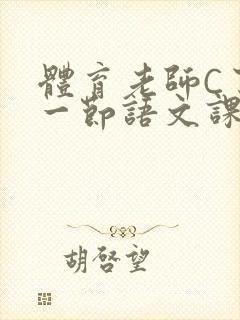 體育老師C
一節語文課
胡啓望